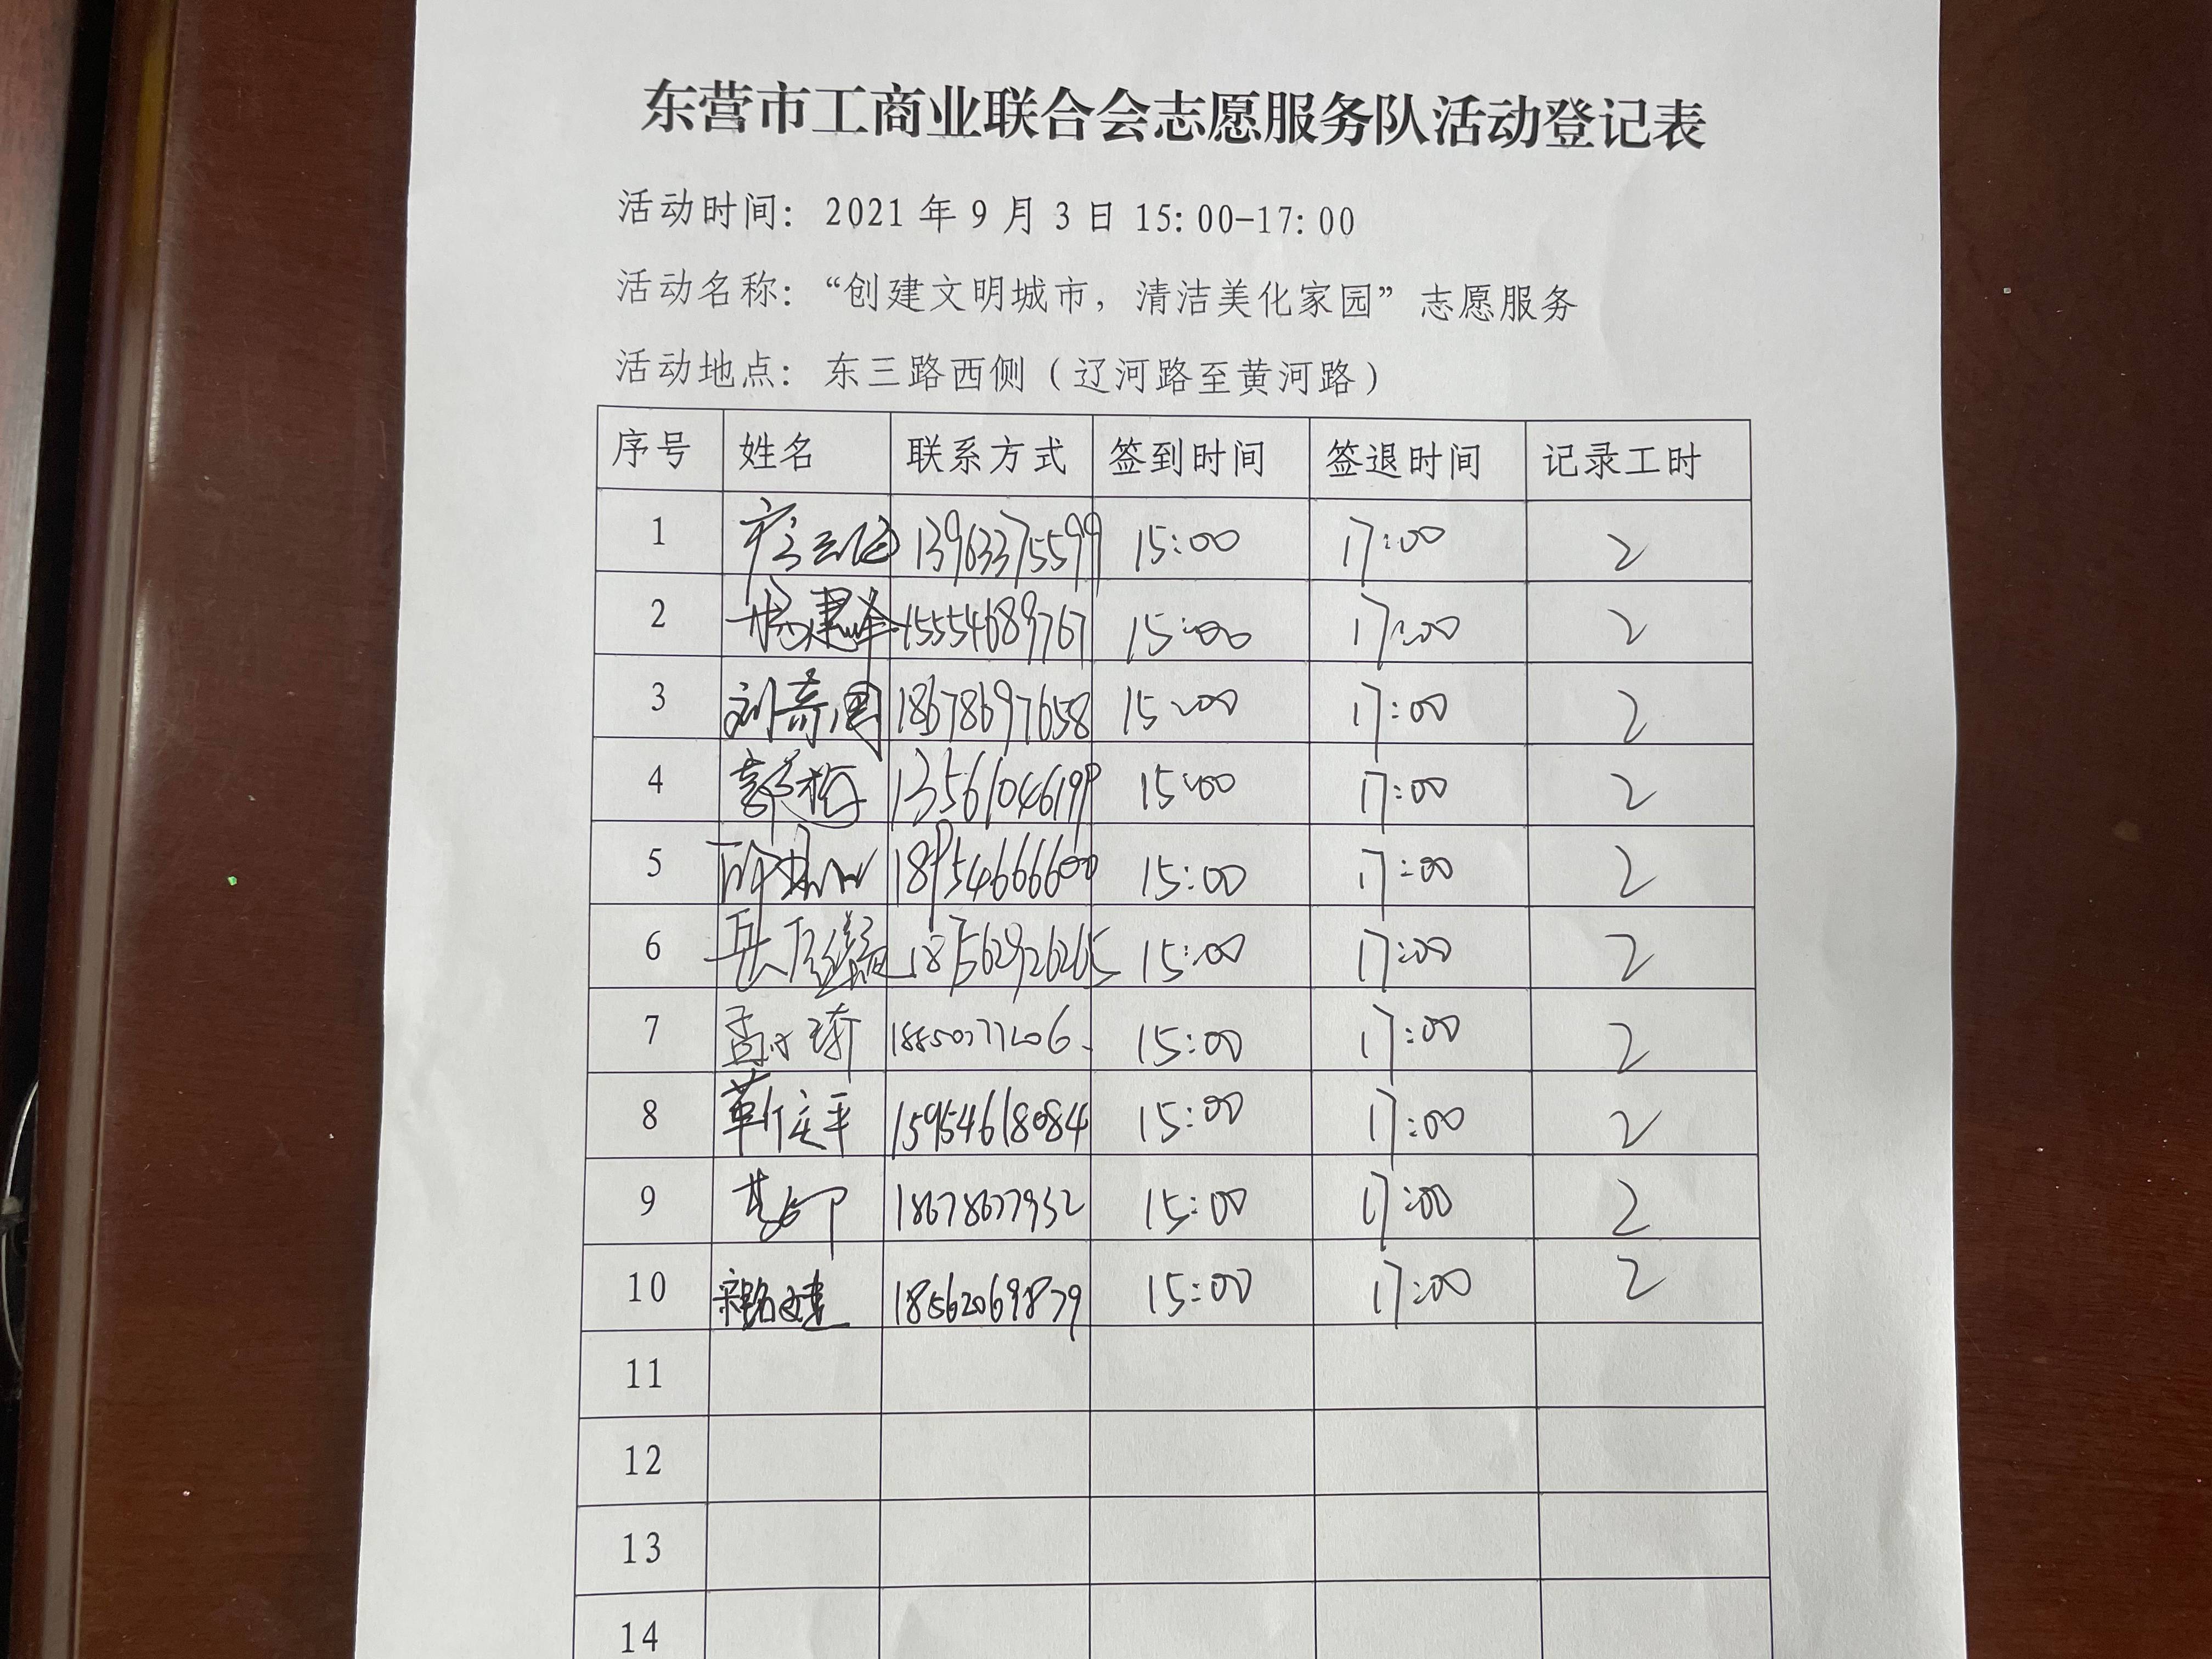 东营市工商业联合会志愿服务队活动登记表
活动时间：2021年9月3日15:00-17:00
活动名称：“创建文明城市，清洁美化家园”志愿服务
活动地点：东三路西侧（辽河路至黄河路）
序号 姓名 联系方式 签到时间 签退时间 记录工时
1 13963375599 15:00 17:00 2
2 杨建峰 15554689767 15:00 17:00 2
3 刘奇国 18678697658 15:00 17:00 2
4 郭梅 13561046199 15:00 17:00 2
5 18954666600 15:00 17:00 2
6 187562926265 15:00 17:00 2
7 孟 15:00 17:00 2
8 靳庆平 15954618084 15:00 17:00 2
9 18678677952 15:00 17:00 2
10 18562069879 15:00 17:00 2
11
12
13
14